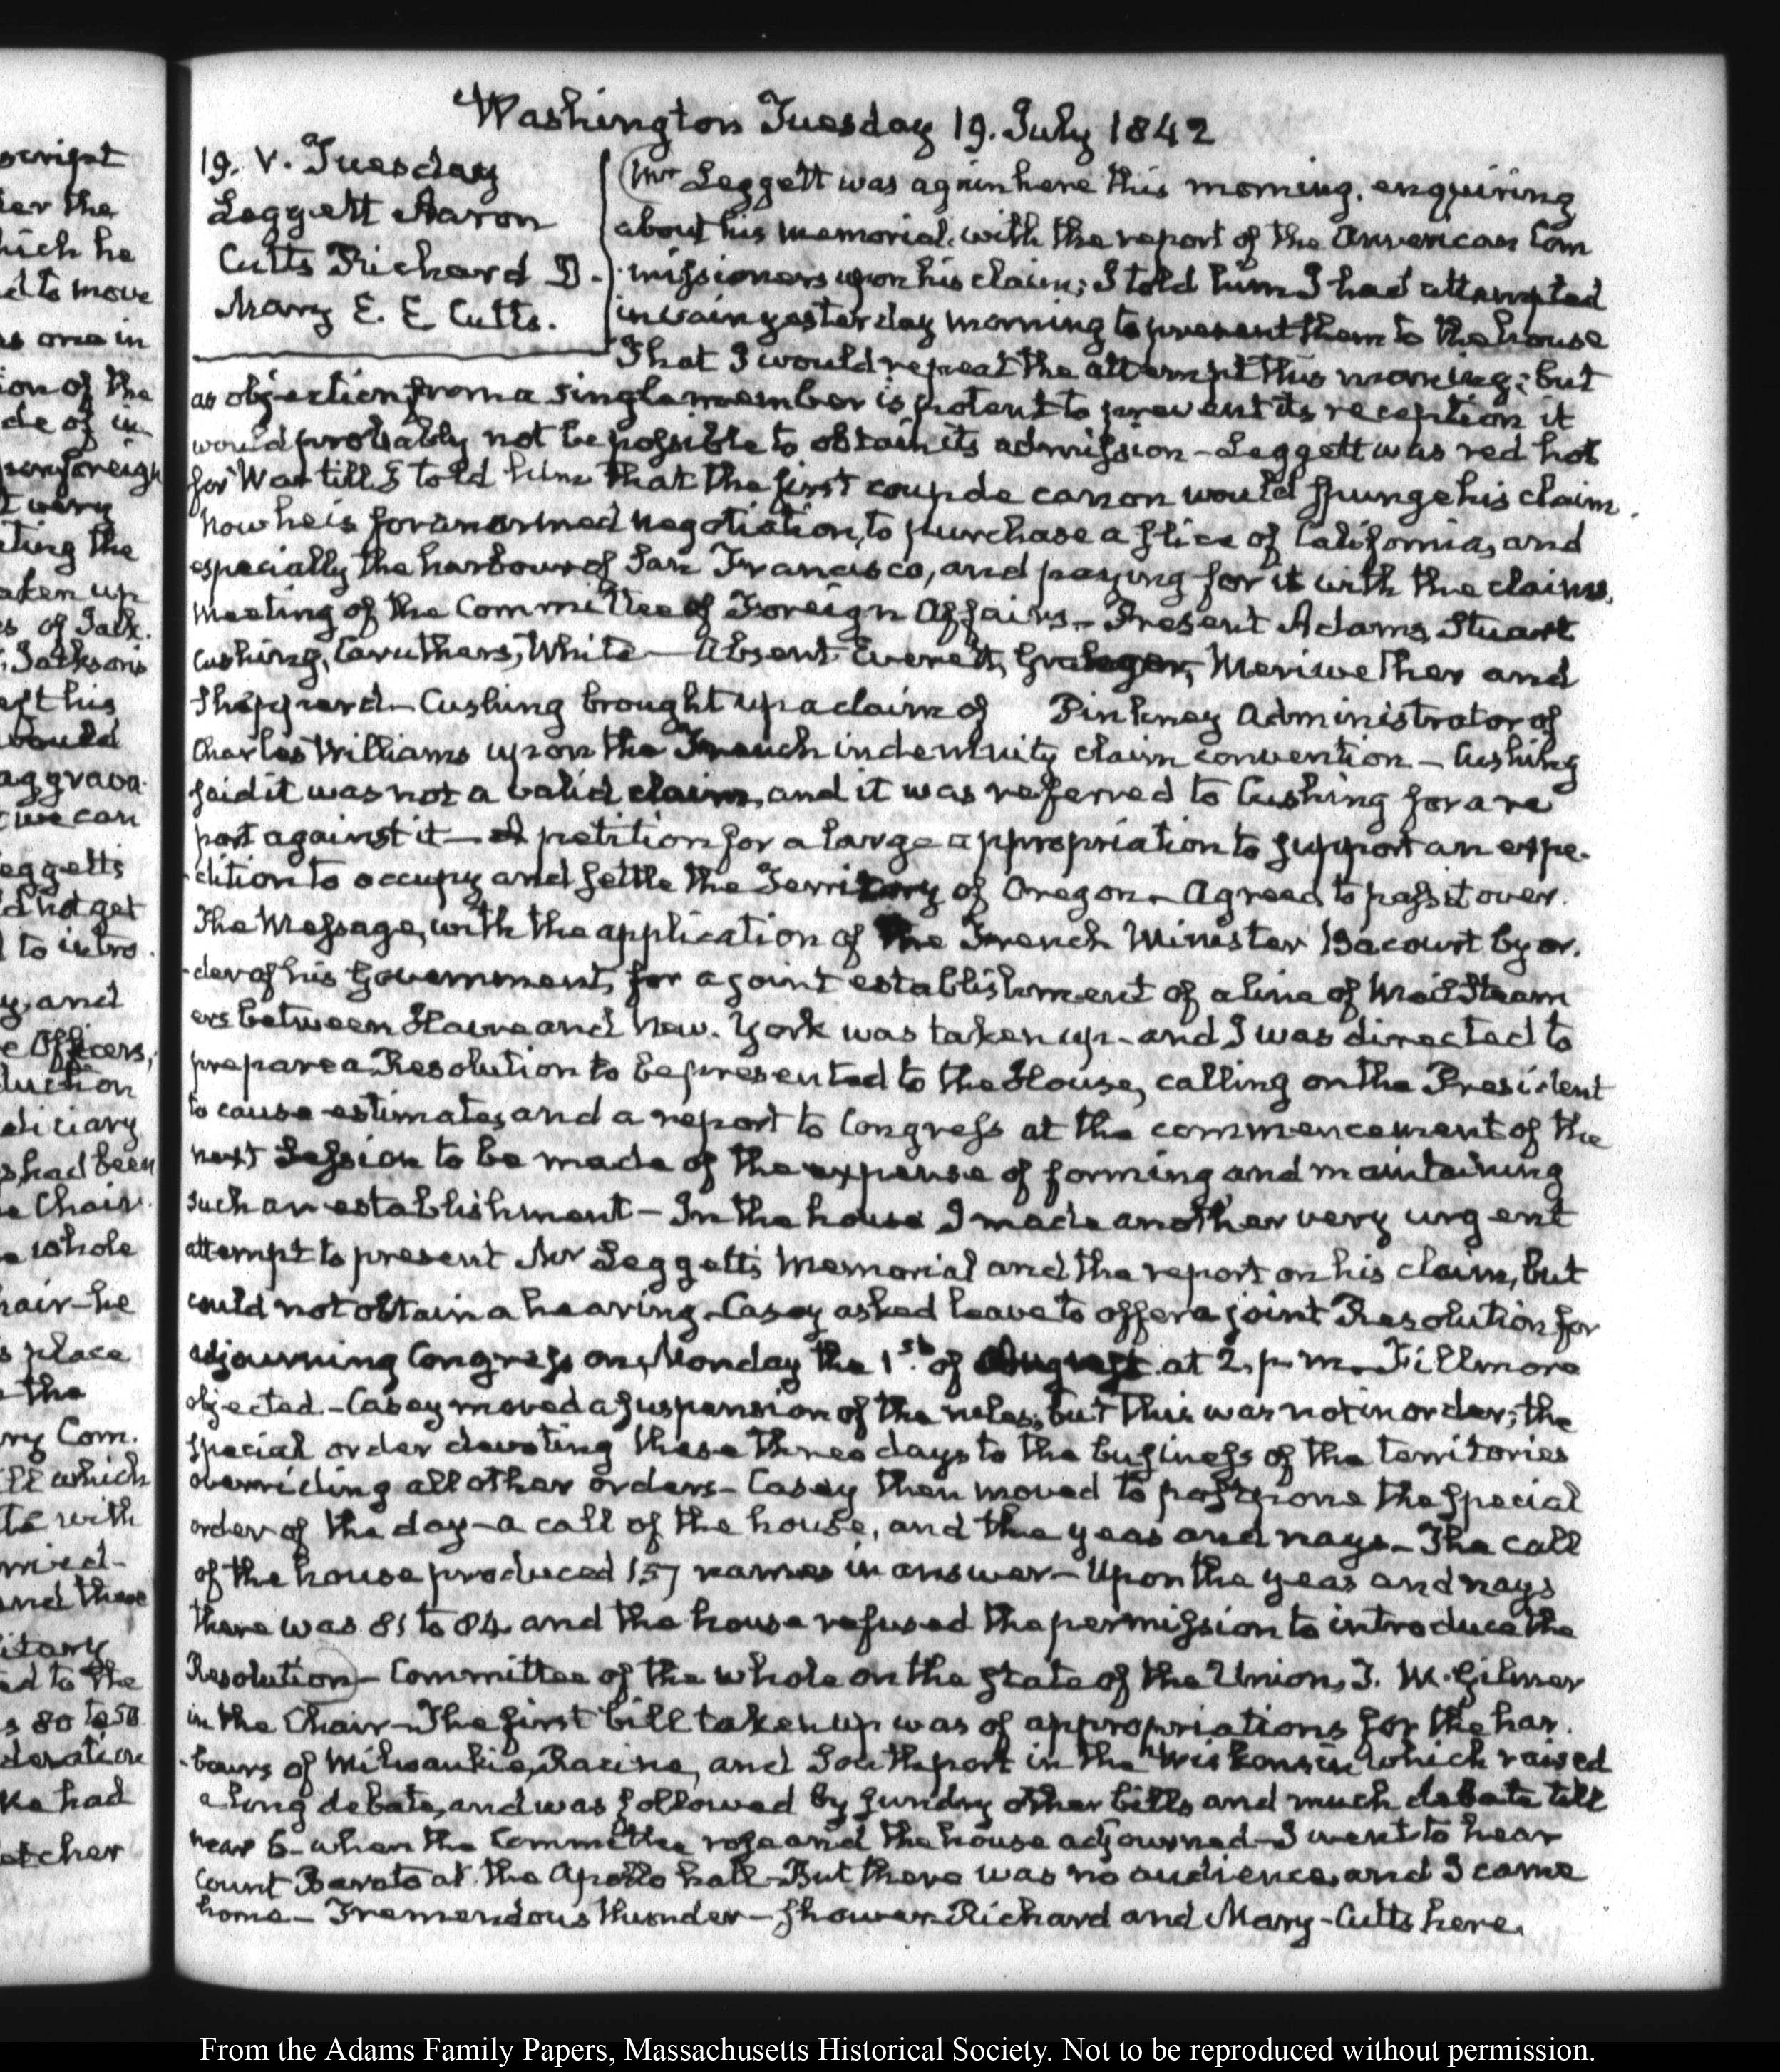 Washington Tuesday 19. July 1842
19. V. Tuesday
Leggett Aaron
Cutts Richard D.
Mary E. E Cutts.
Mr Leggett was again here this morning, enquiring
about his memorial, with the report of the American Com
missioners upon his claim; I told him I had attempted
in vain yesterday morning to present them to the house
That I would repeat the attempt this morning; but
as objection from a single member is potent to prevent its reception it
would probably not be possible to obtain its admission - Leggett was red hot
for War till I told him that the first coup de canon would spunge his claim.
Now he is for an armed negotiation, to purchase a slice of California, and
especially the harbour of San Francisco, and paying for it with the claims.
Meeting of the Committee of Foreign Affairs - Present Adams, Stuart
Cushing, Caruthers, White - Absent Everett, Granger, Meriwether and
Shepperd - Cushing brought up a claim of Pinkney Administrator of
Charles Williams upon the French indemnity claim convention - Cushing
said it was not a valid claim, and it was referred to Cushing for a re
port against it - A petition for a large appropriation to support an expe-
-dition to occupy and settle the Territory of Oregon - Agreed to pass it over.
The Message, with the application of the French Minister Bacourt by or.
-der of his Government, for a joint establishment of a line of Mail Steam
ers between Havre and New. York was taken up - and I was directed to
prepare a Resolution to be presented to the House, calling on the President
to cause estimates, and a report to Congress at the commencement of the
next Session to be made of the expense of forming and maintaining
such an establishment - In the house I made another very urgent
attempt to present Mr Leggett's Memorial and the report on his claim, but
could not obtain a hearing - Casey asked leave to offer a joint Resolution for
adjourning Congress on Monday the 1st. of August at 2. p.m. Fillmore
objected. - Casey moved a suspension of the rules; but this was not in order; the
special order devoting these three days to the business of the territories
overriding all other orders - Casey then moved to postpone the special
order of the day - a call of the house, and the yeas and nays - The call
of the house produced 157 names in answer - Upon the yeas and nays
there was 81 to 84 and the house refused the permission to introduce the
Resolution - Committee of the whole on the state of the Union, T. W. Gilmer
in the Chair - The first bill taken up was of appropriations for the har.
-bours of Milwaukie, Racine, and Southport in the Wiskonsin which raised
a long debate, and was followed by sundry other bills and much debate till
near 6 - when the Committee rose and the house adjourned - I went to hear
Count at the Apollo hall - But there was no audience, and I came
home - Tremendous thunder - shower. Richard and Mary - Cutts here.
script
ier the
hich he
d to move
s one in
ion of the
de of in
foreign
very
ting the
aken up
s of Talk.
Jackson's
eft this
would
aggrava
we can
eggetts
d not get
to intro
y, and
e Officers,
duction
diciary
s had been
e Chair.
whole
hair - he
s place
the
ry Com.
ll which
te with
mied-
and these
itory
ed to the
s 80 to 58
deration
ke had
etcher
From the Adams Family Papers, Massachusetts Historical Society. Not to be reproduced without permission.